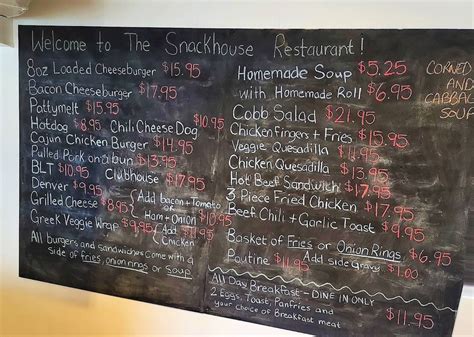 Welcome to The Snackhouse Restaurant!
8oz Loaded Cheeseburger $15.95
Bacon Cheeseburger $17.95
Pattymelt $15.95
Hotdog $8.95 Chili Cheese Dog $10.95
Cajun Chicken Burger $14.95
Pulled Pork on a bun $13.95
BLT $10.95 Clubhouse $17.95
Denver $9.95
Grilled Cheese $8.95 Add bacon + Tomato
or
Ham + Onion $10.95
Greek Veggie Wrap $9.95 Add Chicken
All burgers and sandwiches come with a
side of fries, onion rings or soup.
Homemade Soup $5.25
with Homemade Roll $6.95
Cobb Salad $21.95
Chicken Fingers + Fries $15.95
Veggie Quesadilla
Chicken Quesadilla $13.95
Hot Beef Sandwich $17.95
3 Piece Fried Chicken $17.95
Beef Chili + Garlic Toast $9.95
Basket of Fries or Onion Rings $6.95
Poutine $11.95 Add side gravy $1.00
All Day Breakfast - DINE IN ONLY
2 Eggs, Toast, Panfries and
your choice of Breakfast meat $11.95
CORNED
AND
CABBAG
SOUP